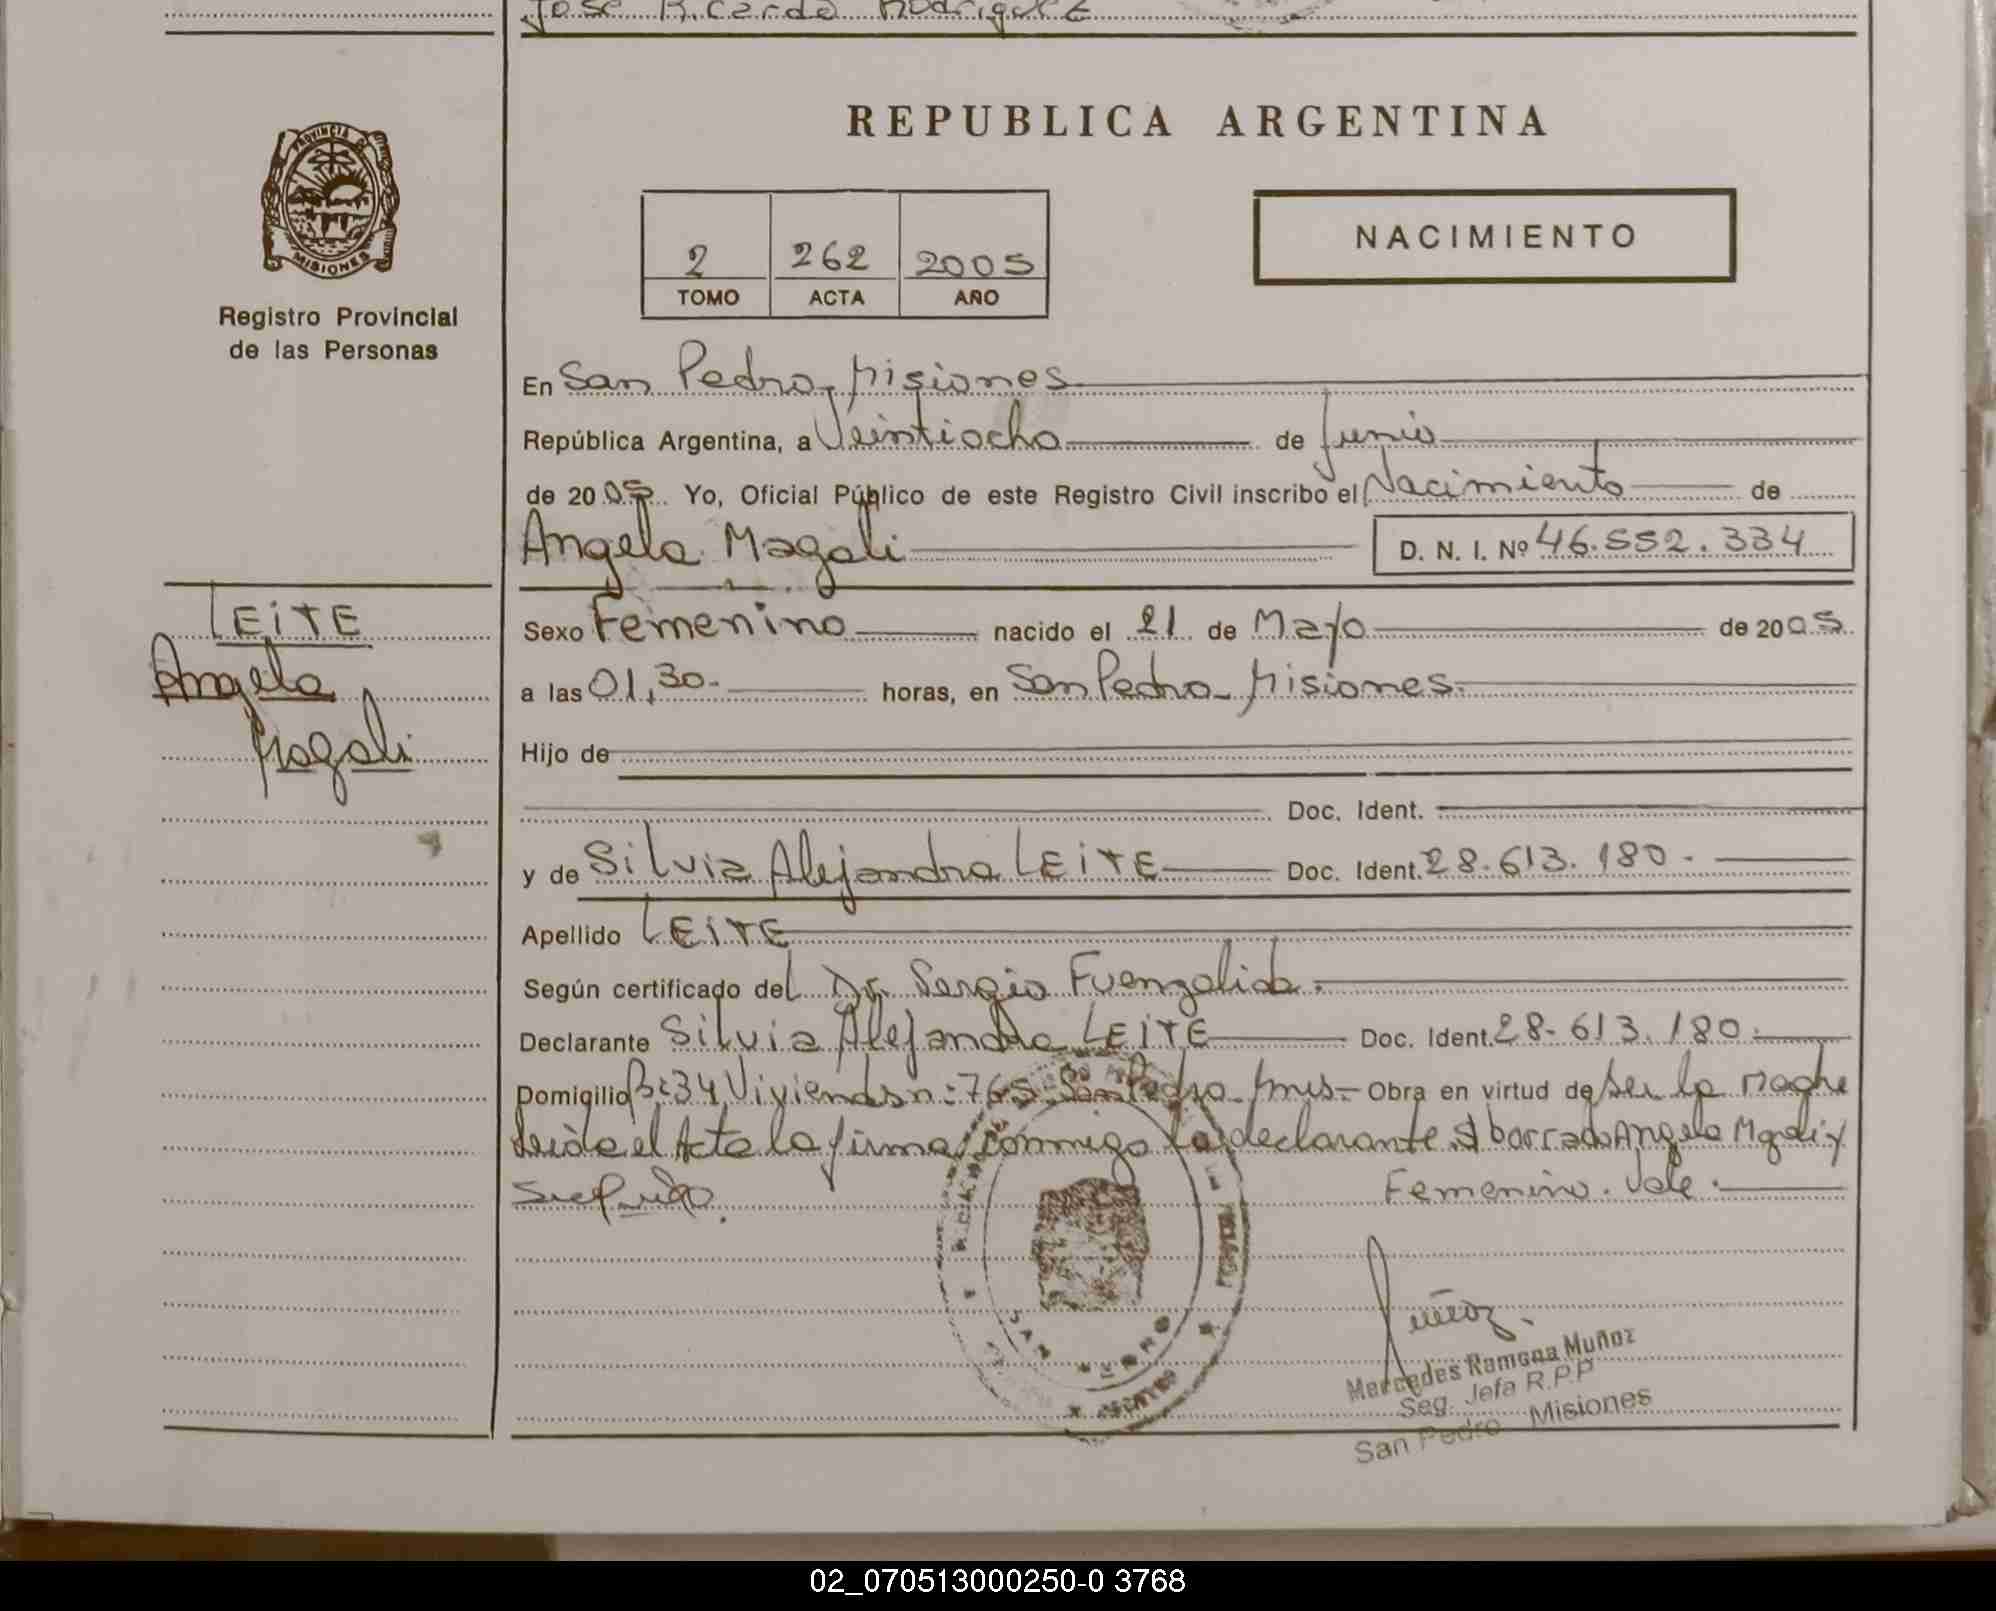 José Ricardo Rodriguez
PROVINCIA DE
MISIONES
Registro Provincial
de las Personas
LEITE
Angela
Magali
REPUBLICA ARGENTINA
2 262 2005
TOMO ACTA AÑO
NACIMIENTO
En San Pedro, Misiones
República Argentina, a Veintiocho de Junio
de 2005 Yo, Oficial Público de este Registro Civil inscribo el Nacimiento de
Angela Magali D. N. I. Nº 46.552.334
Sexo Femenino nacido el 21 de Mayo de 2005
a las 01,30- horas, en San Pedro- Misiones.
Hijo de
Doc. Ident.
y de Silvia Alejandra LEITE Doc. Ident. 28.613.180.-
Apellido LEITE
Según certificado del Dr. Sergio Fuenzalida.
Declarante Silvia Alejandra LEITE Doc. Ident. 28.613.180.
Domicilio Bº 34 Viviendas nº 765 San Pedro Mnes.- Obra en virtud de ser la Madre
Leída el Acta la firma conmigo la declarante. S/ borrado Angela Magali y
Femenino. Vale.-
SAN PEDRO
MISIONES
Muñoz.
Mercedes Ramona Muñoz
Seg. Jefa R.P.P
San Pedro Misiones
02_070513000250-0 3768